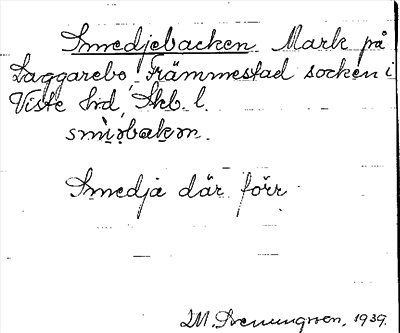 Smedjebacken Mark på
Laggarebo, Främmestad socken i
Viste hd, Skb. l.
smìəbakən.
Smedja där förr
M. Svenungsson, 1939.